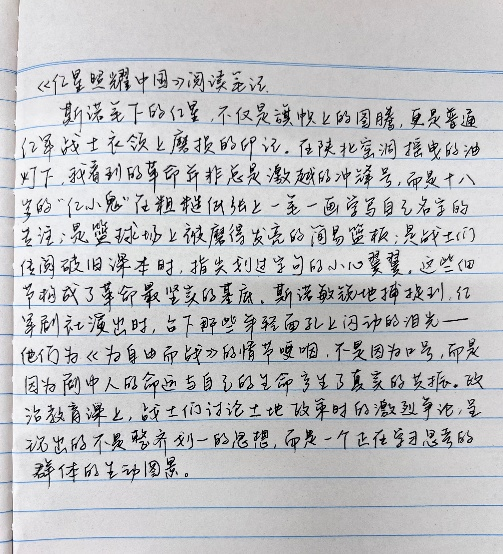 《红星照耀中国》阅读笔记
斯诺笔下的红星，不仅是旗帜上的图腾，更是普通
红军战士衣领上磨损的印记。在陕北窑洞摇曳的油
灯下，我看到的革命并非总是激越的冲锋号，而是十八
岁的“红小鬼”在粗糙纸张上一笔一画学写自己名字的
专注；是篮球场上被磨得发亮的简易篮板；是战士们
传阅破旧课本时，指尖划过字句的小心翼翼。这些细
节构成了革命最坚实的基底。斯诺敏锐地捕捉到，红
军剧社演出时，台下那些年轻面孔上闪动的泪光——
他们为《为自由而战》的情节哽咽，不是因为口号，而是
因为剧中人的命运与自己的生命产生了真实的共振。政
治教育课上，战士们讨论土地政策时的激烈争论，呈
现出的不是整齐划一的思想，而是一个正在学习思考的
群体的生动图景。